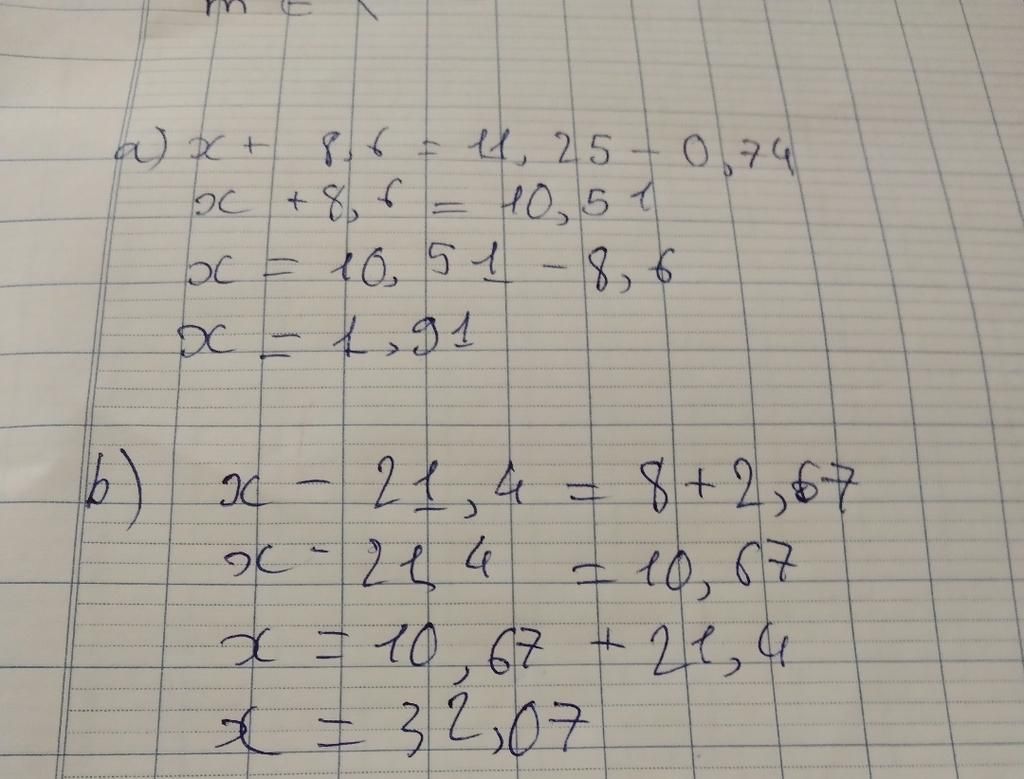 a) x + 8,6 = 11,25 - 0,74
x + 8,6 = 10,51
x = 10,51 - 8,6
x = 1,91
b) x - 21,4 = 8 + 2,67
x - 21,4 = 10,67
x = 10,67 + 21,4
x = 32,07